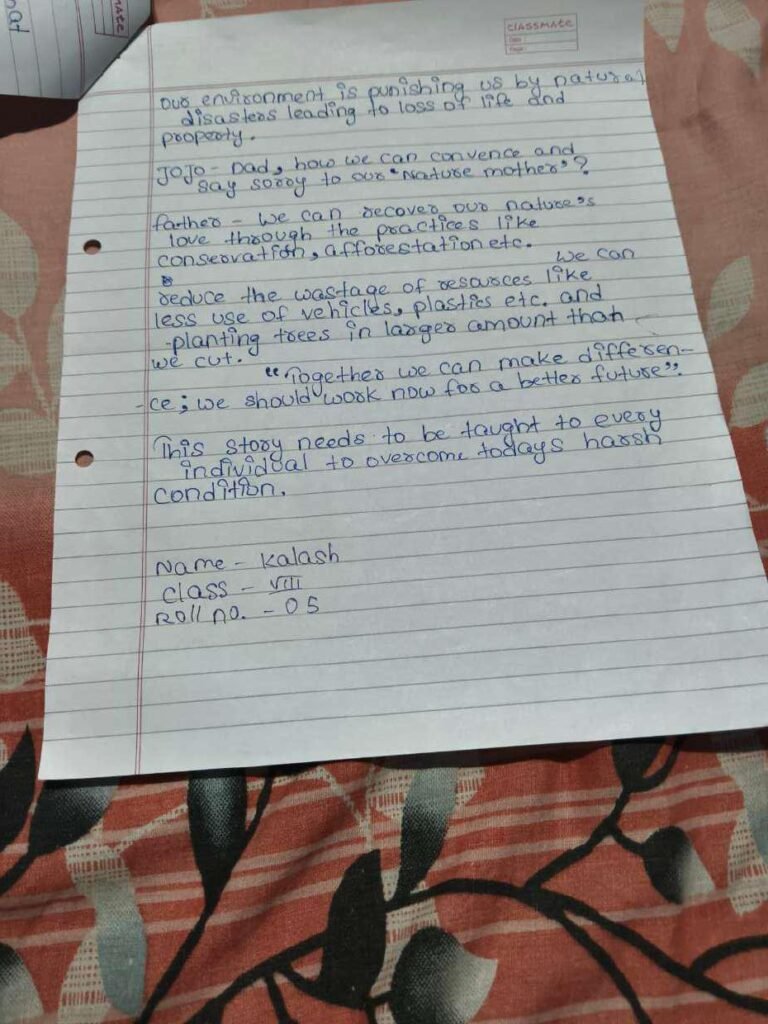 CLASSMATE
Date
Page
our environment is punishing us by natural
disasters leading to loss of life and
property.
JOJO - Dad, how we can convence and
say sorry to our "Nature mother"?
father - We can recover our nature's
love through the practices like
conservation, afforestation etc.
We can
reduce the wastage of resources like
less use of vehicles, plastics etc. and
planting trees in larger amount than
we cut.
"Together we can make differen-
-ce; we should work now for a better future".
This story needs to be taught to every
individual to overcome todays harsh
condition.
Name - Kalash
Class - VIII
Roll no. - 05